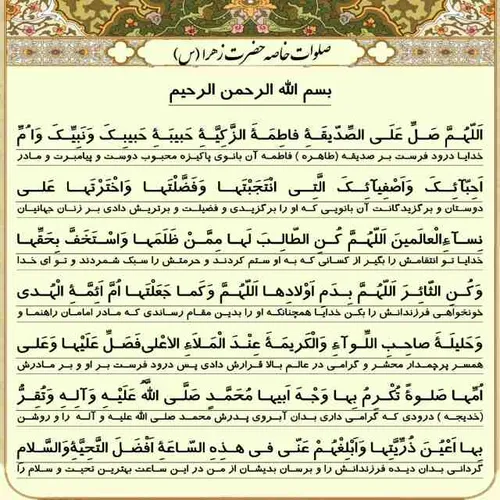 صلوات خاصه حضرت زهرا (س)
بسم الله الرحمن الرحیم
اَللّهُمَّ صَلِّ عَلَی الصِّدّیقَةِ فاطِمَةَ الزَّکِیَّةِ حَبیبَةِ حَبیبِکَ وَنَبِیِّکَ وَاُمِّ
خدایا درود فرست بر صدیقه (طاهره) فاطمه آن بانوی پاکیزه محبوب دوست و پیامبرت و مادر
اَحِبّآئِکَ وَاَصْفِیآئِکَ الَّتِی انْتَجَبْتَها وَفَضَّلْتَها وَاخْتَرْتَها عَلی
دوستان و برگزیدگانت آن بانویی که او را برگزیدی و فضیلت و برتریش دادی بر زنان جهانیان
نِسآءِالْعالَمینَ اَللّهُمَّ کُنِ الطّالِبَ لَها مِمَّنْ ظَلَمَها وَاسْتَخَفَّ بِحَقِّها
خدایا تو انتقامش را بگیر از کسانی که به او ستم کردند و حرمتش را سبک شمردند و تو ای خدا
وَکُنِ الثّائِرَ اَللّهُمَّ بِدَمِ اَوْلادِها اَللّهُمَّ وَکَما جَعَلْتَها اُمَّ اَئِمَّةِ الْهُدی
خونخواهی فرزندانش را بکن خدایا همچنانکه او را بدین مقام رساندی که مادر امامان راهنما و
وَحَلیلَةَ صاحِبِ اللِّوآءِ وَالْکَریمَةَ عِنْدَ الْمَلاَءِ الاْعْلی فَصَلِّ عَلَیْها وَعَلی
همسر پرچمدار محشر و گرامی در عالم بالا قرارش دادی پس درود فرست بر او و بر مادرش
اُمِّها صَلوةً تُکْرِمُ بِها وَجْهَ اَبیها مُحَمَّدٍ صَلَّی اللَّهُ عَلَیْهِ وَآلِهِ وَتُقِرُّ
(خدیجه) درودی که گرامی داری بدان آبروی پدرش محمد صلی الله علیه و آله را و روشن
بِها اَعْیُنَ ذُرِّیَّتِها وَاَبْلِغْهُمْ عَنّی فی هذِهِ السّاعَةِ اَفْضَلَ التَّحِیَّةِ وَالسَّلامِ
گردانی بدان دیده فرزندانش را و برسان بدیشان از من در این ساعت بهترین تحیت و سلام را